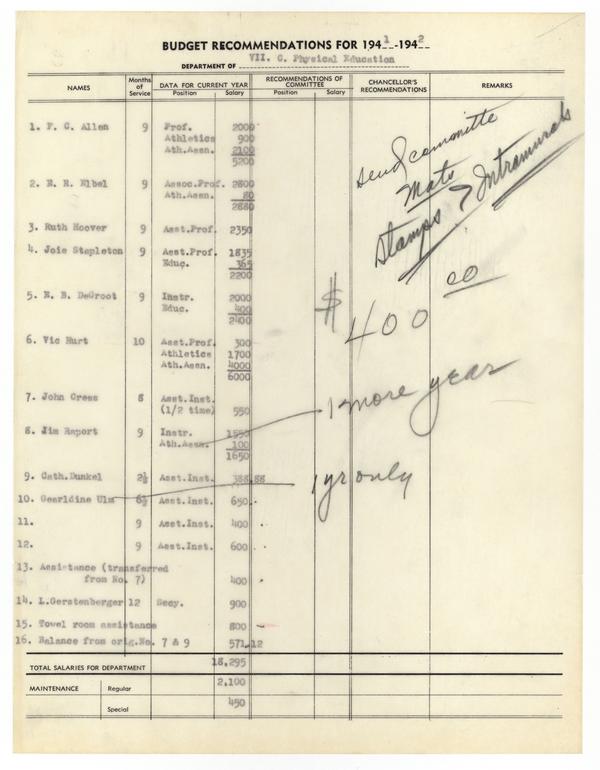 BUDGET RECOMMENDATIONS FOR 1941-1942
DEPARTMENT OF VII. C. Physical Education
NAMES Months of Service DATA FOR CURRENT YEAR Position Salary RECOMMENDATIONS OF COMMITTEE Position Salary CHANCELLOR'S RECOMMENDATIONS REMARKS
1. F. C. Allen 9 Prof. 2000
Athletics 900
Ath.Assn. 2100
5200
2. E. R. Elbel 9 Assoc.Prof. 2800
Ath.Assn. 80
2880
3. Ruth Hoover 9 Asst.Prof. 2350
4. Joie Stapleton 9 Asst.Prof. 1835
Educ. 365
2200
5. E. B. DeGroot 9 Instr. 2000
Educ. 400
2400
6. Vic Hurt 10 Asst.Prof. 300
Athletics 1700
Ath.Assn. 4000
6000
7. John Cress 8 Asst.Inst.
(1/2 time) 550
8. Jim Raport 9 Instr. 1550
Ath.Assn. 100
1650
9. Cath.Dunkel 2½ Asst.Inst. 388.88
10. Gearldine Ulm 6½ Asst.Inst. 650.
11. 9 Asst.Inst. 400
12. 9 Asst.Inst. 600
13. Assistance (transferred
from No. 7) 400
14. L.Gerstenberger 12 Secy. 900
15. Towel room assistance 800
16. Balance from orig.No. 7 & 9 571.12
TOTAL SALARIES FOR DEPARTMENT 18,295
MAINTENANCE Regular 2,100
Special 450
Send committe
Mats
Stamps ? Intramurals
$400 00
1 more year
1 yr only